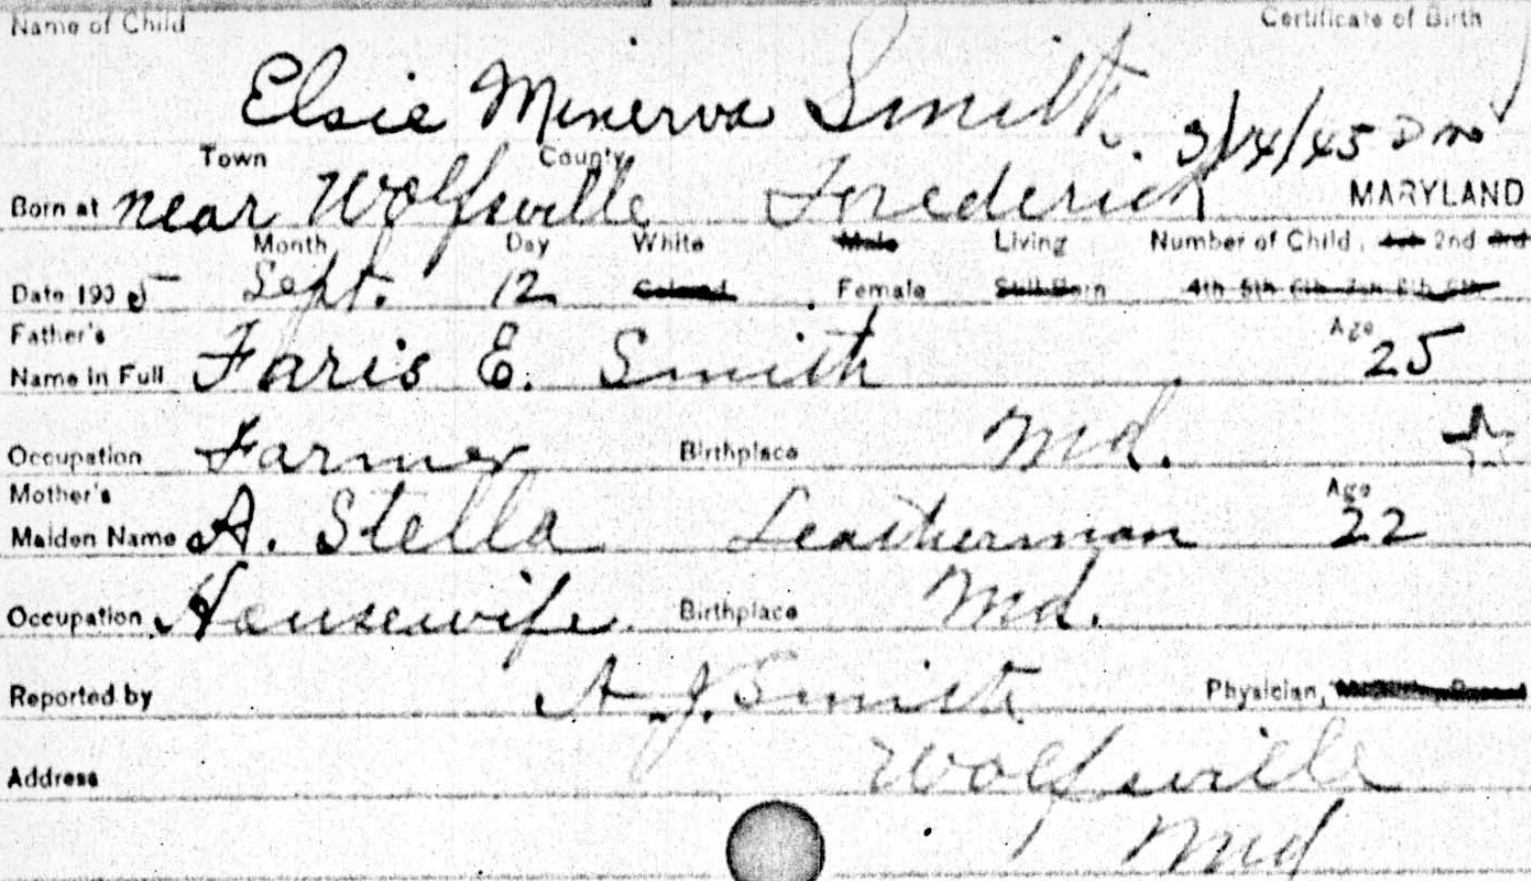 Name of Child Certificate of Birth
Elsie Minerva Smith. 3/14/45
Town County
Born at near Wolfsville Frederick MARYLAND
Month Day White Male Living Number of Child, 1st 2nd 3rd
Date 1905 Sept. 12 Colored Female Still Born 4th 5th 6th 7th 8th 9th
Father's Age
Name in Full Faris E. Smith 25
Occupation Farmer Birthplace Md.
Mother's Age
Maiden Name A. Stella Leatherman 22
Occupation Housewife. Birthplace Md.
Reported by A. J. Smith Physician,
Address Wolfsville
Md